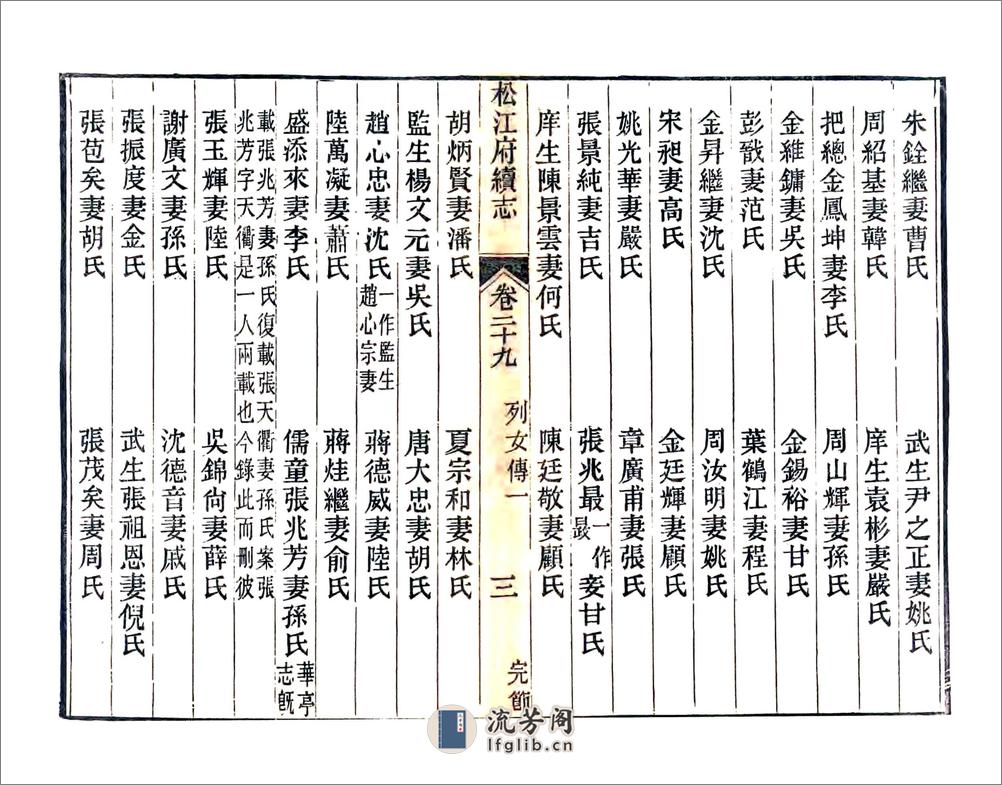 朱銓繼妻曹氏 武生尹之正妻姚氏
周紹基妻韓氏 庠生袁彬妻嚴氏
把總金鳳坤妻李氏 周山輝妻孫氏
金維鏞妻吳氏 金錫裕妻甘氏
彭戩妻范氏 葉鶴江妻程氏
金昇繼妻沈氏 周汝明妻姚氏
宋昶妻高氏 金廷輝妻顧氏
姚光華妻嚴氏 章廣甫妻張氏
張景純妻吉氏 張兆最一作晸妾甘氏
庠生陳景雲妻何氏 陳廷敬妻顧氏
松江府續志 卷二十九 列女傳一 三 完節
胡炳賢妻潘氏 夏宗和妻林氏
監生楊文元妻吳氏 唐大忠妻胡氏
趙心忠妻沈氏一作監生趙心宗妻 蔣德威妻陸氏
陸萬凝妻蕭氏 蔣烓繼妻俞氏
盛添來妻李氏 儒童張兆芳妻孫氏華亭志旣
載張兆芳妻孫氏復載張天衢妻孫氏案張
兆芳字天衢是一人兩載也今錄此而刪彼
張玉輝妻陸氏 吳錦尙妻薛氏
謝廣文妻孫氏 沈德音妻戚氏
張振度妻金氏 武生張祖恩妻倪氏
張苞矣妻胡氏 張茂矣妻周氏
流芳阁
lfglib.cn